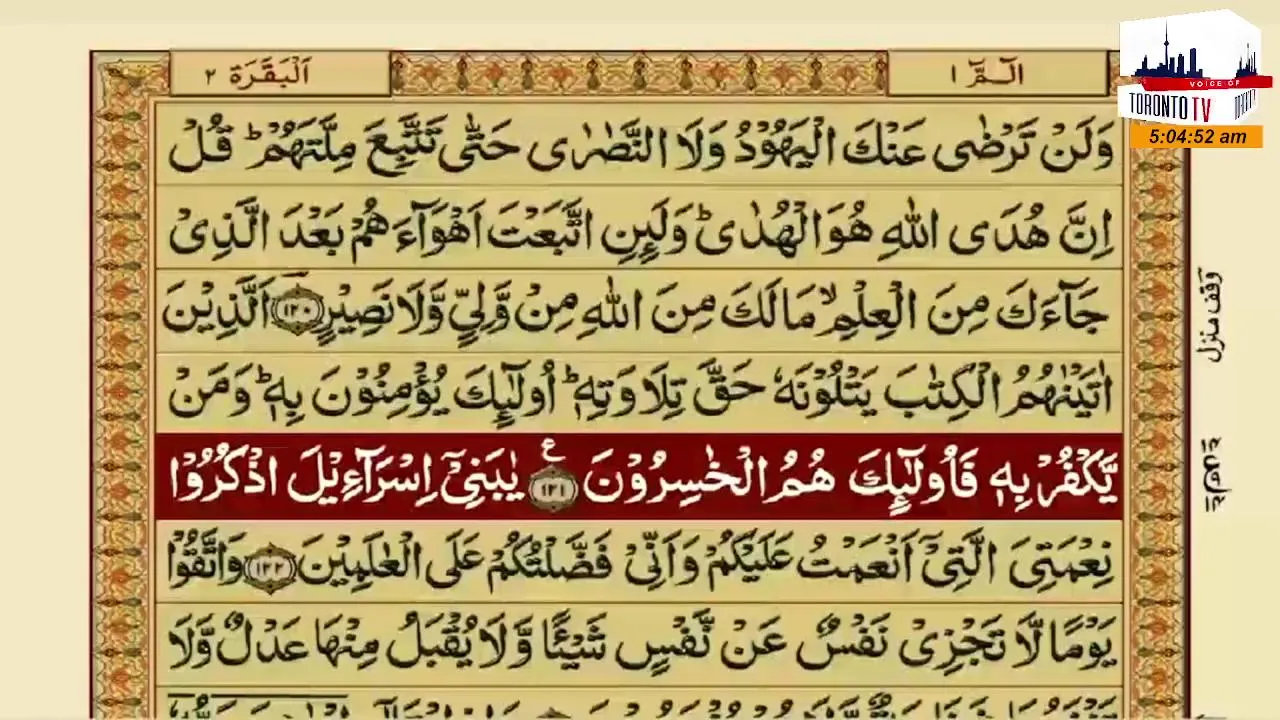 اَلْبَقَرَة ٢
الٓـمّٓ ١
VOICE OF
TORONTO TV
5:04:52 am
وَلَنْ تَرْضٰى عَنْكَ الْيَهُوْدُ وَلَا النَّصٰرٰى حَتّٰى تَتَّبِعَ مِلَّتَهُمْ ؕ قُلْ
اِنَّ هُدَى اللّٰهِ هُوَ الْهُدٰى ؕ وَلَىِٕنِ اتَّبَعْتَ اَهْوَآءَ هُمْ بَعْدَ الَّذِىْ
جَآءَكَ مِنَ الْعِلْمِ ۙ مَا لَكَ مِنَ اللّٰهِ مِنْ وَّلِيٍّ وَّلَا نَصِيْرٍ ١٢٠ اَلَّذِيْنَ
اٰتَيْنٰهُمُ الْكِتٰبَ يَتْلُوْنَهٗ حَقَّ تِلَاوَتِهٖ ؕ اُولٰٓىِٕكَ يُؤْمِنُوْنَ بِهٖ ؕ وَمَنْ
يَّكْفُرْ بِهٖ فَاُولٰٓىِٕكَ هُمُ الْخٰسِرُوْنَ ١٢١ ع يٰبَنِىْٓ اِسْرَآءِيْلَ اذْكُرُوْا
نِعْمَتِىَ الَّتِىْٓ اَنْعَمْتُ عَلَيْكُمْ وَاَنِّىْ فَضَّلْتُكُمْ عَلَى الْعٰلَمِيْنَ ١٢٢ وَاتَّقُوْا
يَوْمًا لَّا تَجْزِىْ نَفْسٌ عَنْ نَّفْسٍ شَيْـًٔا وَّلَا يُقْبَلُ مِنْهَا عَدْلٌ وَّلَا
وقف منزل